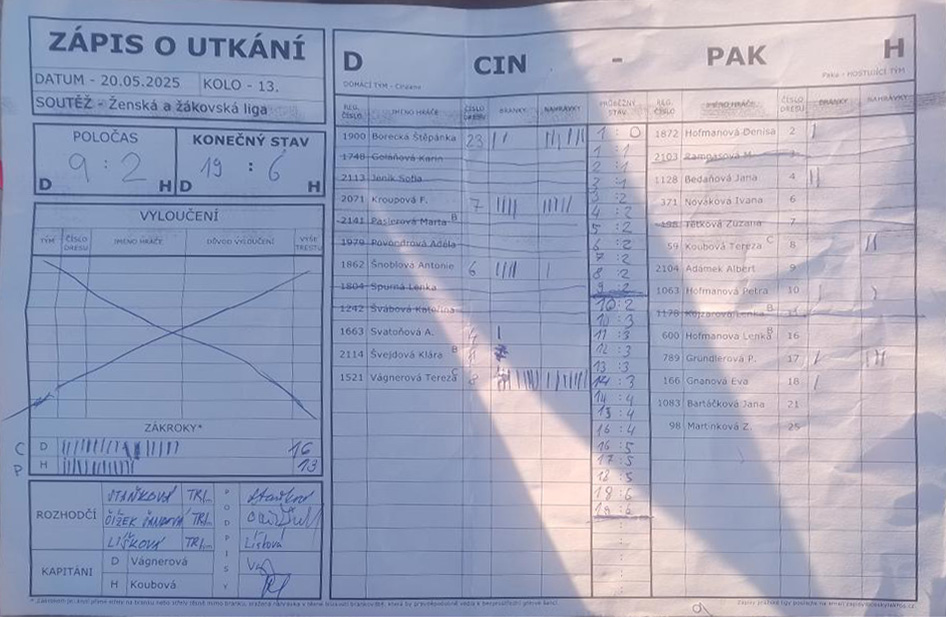 ZÁPIS O UTKÁNÍ
DATUM - 20.05.2025 KOLO - 13.
SOUTĚŽ - Ženská a žákovská liga
POLOČAS
9 : 2
D H
KONEČNÝ STAV
19 : 6
D H
VYLOUČENÍ
TÝM ČÍSLO DRESU JMÉNO HRÁČE DŮVOD VYLOUČENÍ VÝŠE TRESTU
ZÁKROKY*
C D 16
P H 13
ROZHODČÍ
STAŇKOVÁ TRL.
ČÍŽEK TRL.
LÍŠKOVÁ
PODPISY
Líšková
KAPITÁNI
D Vágnerová
H Koubová
D CIN - PAK H
DOMÁCÍ TÝM - Cindana
Paka - HOSTUJÍCÍ TÝM
REG. ČÍSLO JMÉNO HRÁČE ČÍSLO DRESU BRANKY NAHRÁVKY
1900 Borecká Štěpánka 23
1748 Goláňová Karin
2113 Jeník Sofia
2071 Kroupová F. 7
2141 Paslerová Marta B
1979 Povondrová Adéla
1862 Šnoblová Antonie 6
1804 Spurná Lenka
1242 Švábová Kateřina
1663 Svatoňová A.
2114 Švejdová Klára B
1521 Vágnerová Tereza C 8
PRŮBĚŽNÝ STAV
1 : 0
1 : 1
2 : 1
3 : 1
3 : 2
4 : 2
5 : 2
6 : 2
7 : 2
8 : 2
9 : 2
10 : 2
10 : 3
11 : 3
12 : 3
13 : 3
14 : 3
14 : 4
15 : 4
16 : 4
16 : 5
17 : 5
18 : 5
18 : 6
19 : 6
REG. ČÍSLO JMÉNO HRÁČE ČÍSLO DRESU BRANKY NAHRÁVKY
1872 Hofmanová Denisa 2
2103 Rampasová M.
1128 Bedaňová Jana 4
371 Nováková Ivana 6
198 Tetková Zuzana 7
59 Koubová Tereza C 8
2104 Adámek Albert 9
1063 Hofmanová Petra 10
1178 Kojzarová Lenka B
600 Hofmanová Lenka B 16
789 Grundlerová P. 17
166 Gnanová Eva 18
1083 Bartáčková Jana 21
98 Martinková Z. 25